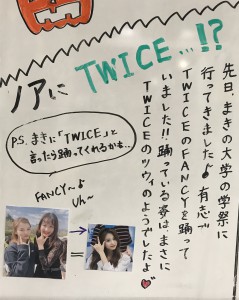 ノアに TWICE...!?
先日、まきの大学の学祭に
行ってきました♪ 有志で
TWICEのFANCYを踊って
いました!! 踊っている姿はまさに
TWICEのツウィのようでしたよ♥
P.S. まきに「TWICE」と
言ったら踊ってくれるかも...
FANCY〜♪
Uh〜
=